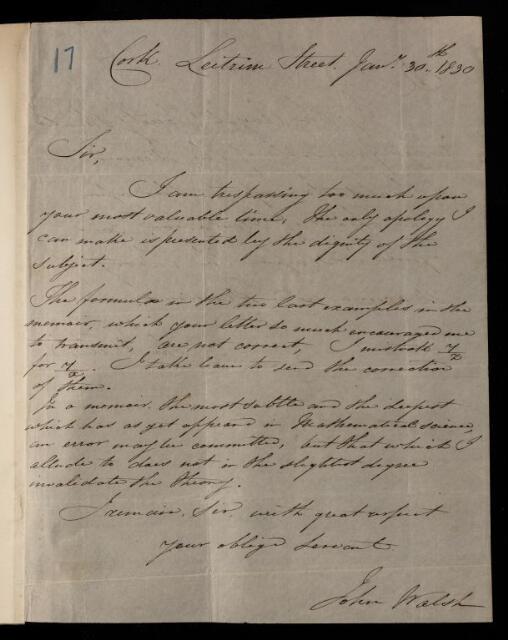 17
Cork Leitrim Street. Jany. 30th 1830
Sir,
I am trespassing too much upon
your most valuable time, the only apology I
can make is presented by the dignity of the
subject.
The formulæ in the two last examples in the
memoir, which your letter so much encouraged me
to transmit, are not correct, I mistook
for I take leave to send the correction
of them.
In a memoir the most subtle and the deepest
which has as yet appeared in Mathematical science,
an error may be committed, but that which I
allude to does not in the slightest degree
invalidate the theory.
I remain, Sir, with great respect
your obliged servant
John Walsh